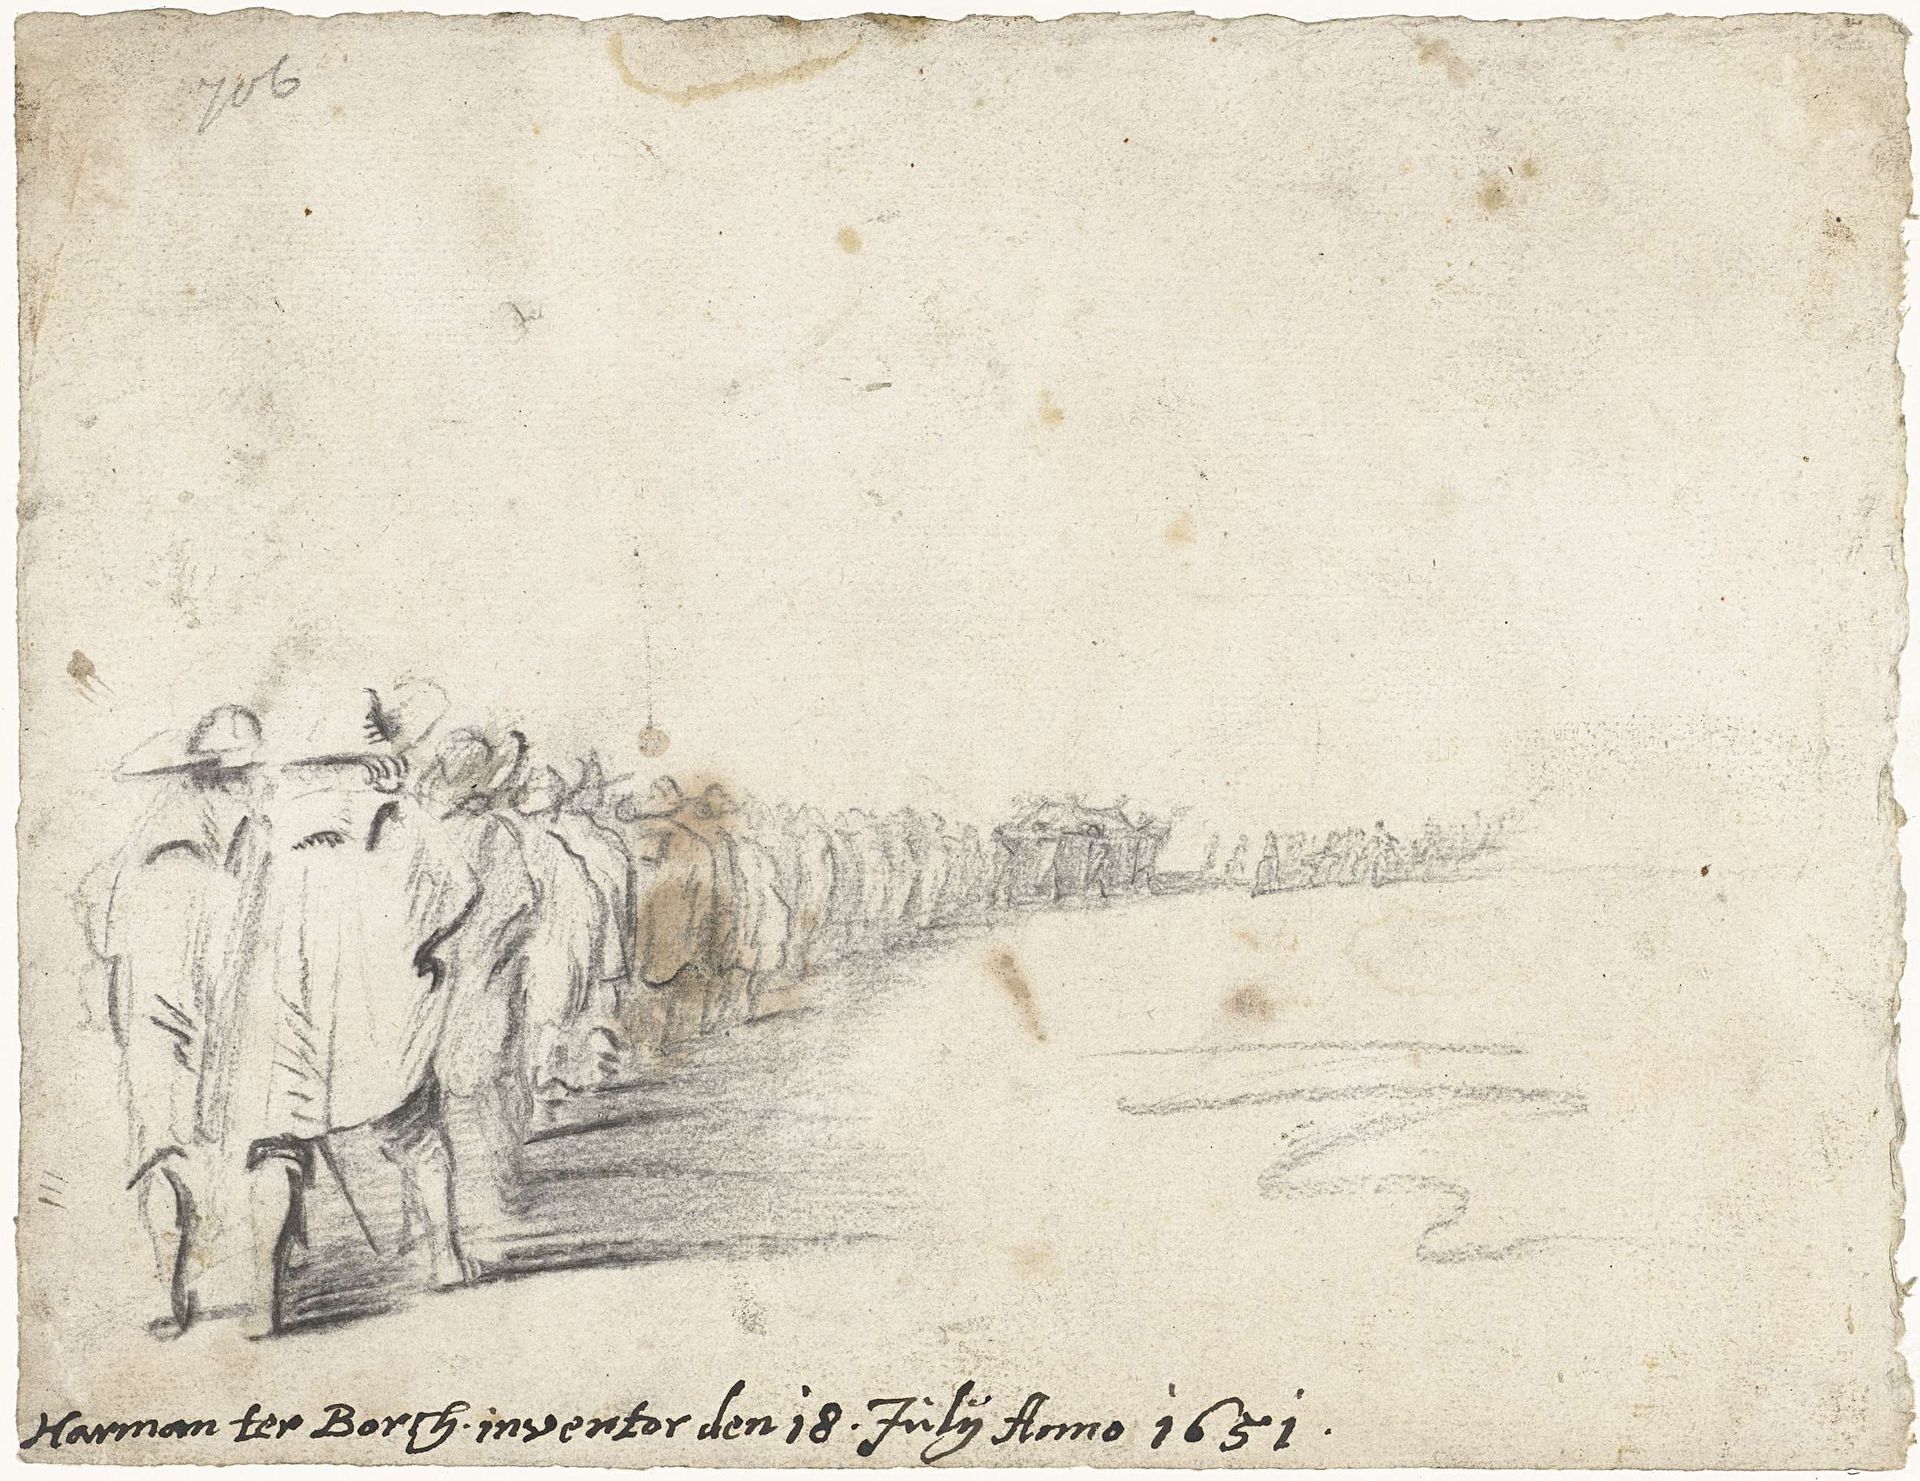 706
Harman ter Borch. inventor den 18. Julÿ Anno 1651.